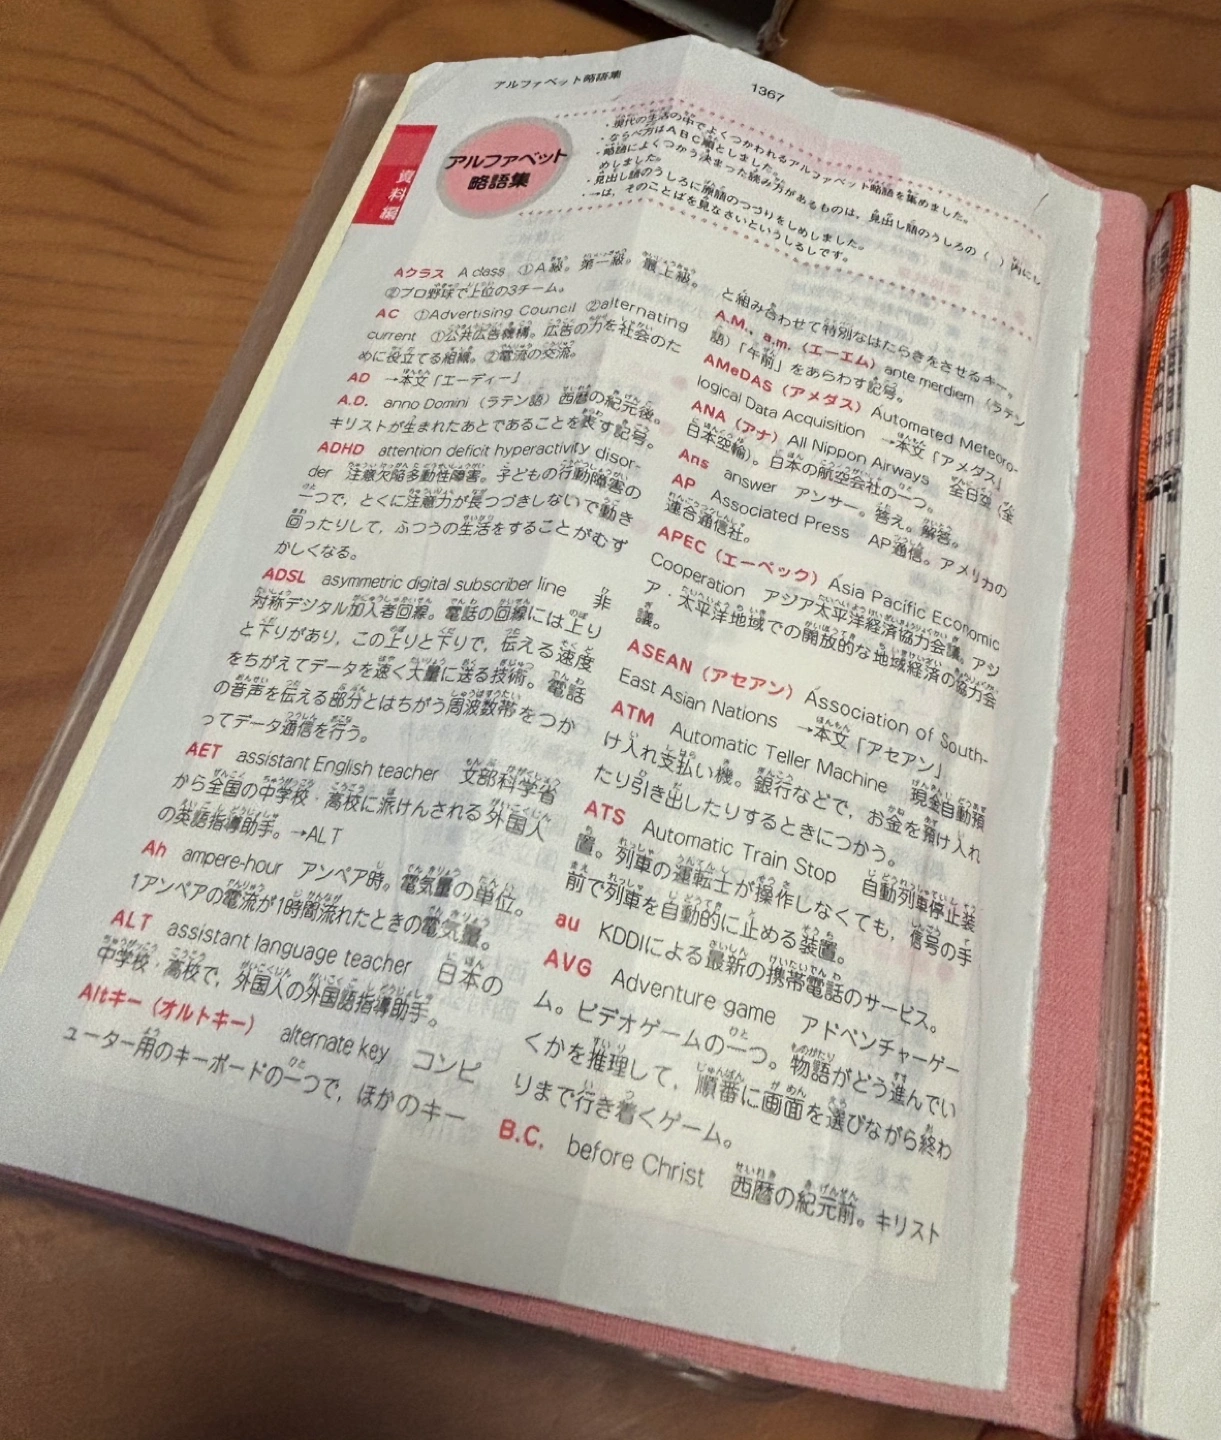 アルファベット略語集
1367
資料編
アルファベット
略語集
・現代の生活の中でよくつかわれるアルファベット略語を集めました。
・ならべ方はＡＢＣ順としました。
・略語によくつかう決まった読み方があるものは，見出し語のうしろの（ ）内にし
めしました。
・見出し語のうしろに原語のつづりをしめしました。
・→は，そのことばを見なさいというしるしです。
Aクラス A class ①A級。第一級。最上級。
②プロ野球で上位の3チーム。
AC ①Advertising Council ②alternating
current ①公共広告機構。広告の力を社会のた
めに役立てる組織。②電流の交流。
AD →本文「エーディー」
A.D. anno Domini（ラテン語）西暦の紀元後。
キリストが生まれたあとであることを表す記号。
ADHD attention deficit hyperactivity disor-
der 注意欠陥多動性障害。子どもの行動障害の
一つで，とくに注意力が長つづきしないで動き
回ったりして，ふつうの生活をすることがむず
かしくなる。
ADSL asymmetric digital subscriber line 非
対称デジタル加入者回線。電話の回線には上り
と下りがあり，この上りと下りで，伝える速度
をちがえてデータを速く大量に送る技術。電話
の音声を伝える部分とはちがう周波数帯をつか
ってデータ通信を行う。
AET assistant English teacher 文部科学省
から全国の中学校・高校に派けんされる外国人
の英語指導助手。→ALT
Ah ampere-hour アンペア時。電気量の単位。
1アンペアの電流が1時間流れたときの電気量。
ALT assistant language teacher 日本の
中学校・高校で，外国人の外国語指導助手。
Altキー（オルトキー） alternate key コンピ
ューター用のキーボードの一つで，ほかのキー
と組み合わせて特別なはたらきをさせるキー。
A.M.，a.m.（エーエム） ante merdiem（ラテン
語）「午前」をあらわす記号。
AMeDAS（アメダス） Automated Meteoro-
logical Data Acquisition →本文「アメダス」
ANA（アナ） All Nippon Airways 全日空（全
日本空輸）。日本の航空会社の一つ。
Ans answer アンサー。答え。解答。
AP Associated Press AP通信。アメリカの
連合通信社。
APEC（エーペック） Asia Pacific Economic
Cooperation アジア太平洋経済協力会議。アジ
ア・太平洋地域での開放的な地域経済の協力会
議。
ASEAN（アセアン） Association of South-
East Asian Nations →本文「アセアン」
ATM Automatic Teller Machine 現金自動預
け入れ支払い機。銀行などで，お金を預け入れ
たり引き出したりするときにつかう。
ATS Automatic Train Stop 自動列車停止装
置。列車の運転士が操作しなくても，信号の手
前で列車を自動的に止める装置。
au KDDIによる最新の携帯電話のサービス。
AVG Adventure game アドベンチャーゲー
ム。ビデオゲームの一つ。物語がどう進んでい
くかを推理して，順番に画面を選びながら終わ
りまで行き着くゲーム。
B.C. before Christ 西暦の紀元前。キリスト